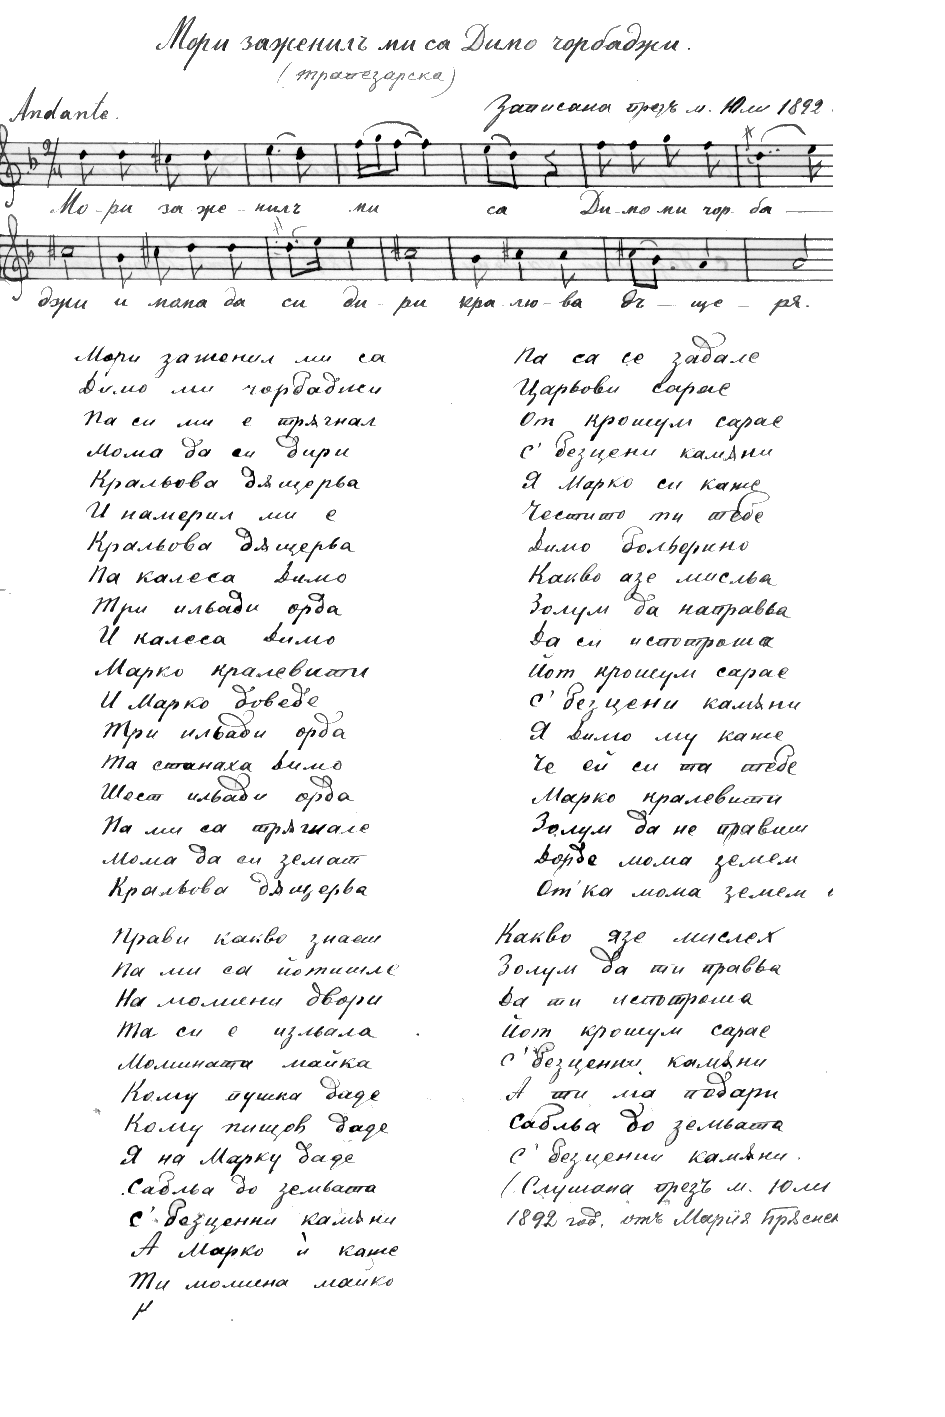 Мори заженилъ ми са Димо чорбаджи.
(трапезарска)
Andante.
Записана презъ м. Юли 1892.
Мо-ри за-же-нилъ ми са Ди-мо ми чор-ба-
джи и мома да си ди-ри кра-лю-ва дъ-ще-ря.
Мори заженил ми са
Димо ми чорбаджи
Па си ми е трѫгнал
Мома да си дири
Кральова дѫщерьа
И намерил ми е
Кральова дѫщерьа
Па калеса Димо
Три ильади орда
И калеса Димо
Марко кралевити
И Марко доведе
Три ильади орда
Та станаха Димо
Шест ильади орда
Па ми са трѫгнале
Мома да си земат
Кральова дѫщерьа
Прави какво знаеш
Па ми са йотишле
На момини двори
Та си е изльала
Момината майка
Кому пушка даде
Кому пищов даде
Я на Марку даде
Сабльа до земьата
С' безценни камѫни
А Марко ѝ каже
Ти момина майко
Па са се задале
Царьови сарае
От крошум сарае
С' безцени камѫни
Я Марко си каже
Честито ти тебе
Димо больерино
Какво азе мисльа
Золум да направьа
Да си испотроша
Йот крошум сарае
С' безцени камѫни
Я Димо му каже
Че ей си та тебе
Марко кралевити
Золум да не правиш
Дорде мома земем
От'ка мома земем
Какво язе мислех
Золум да ти правьа
Да ти испотроша
Йот крошум сарае
С' безценни камѫни
А ти ма подари
Сабльа до земьата
С' безценни камѫни.
(Слушана презъ м. Юли
1892 год. отъ Мария